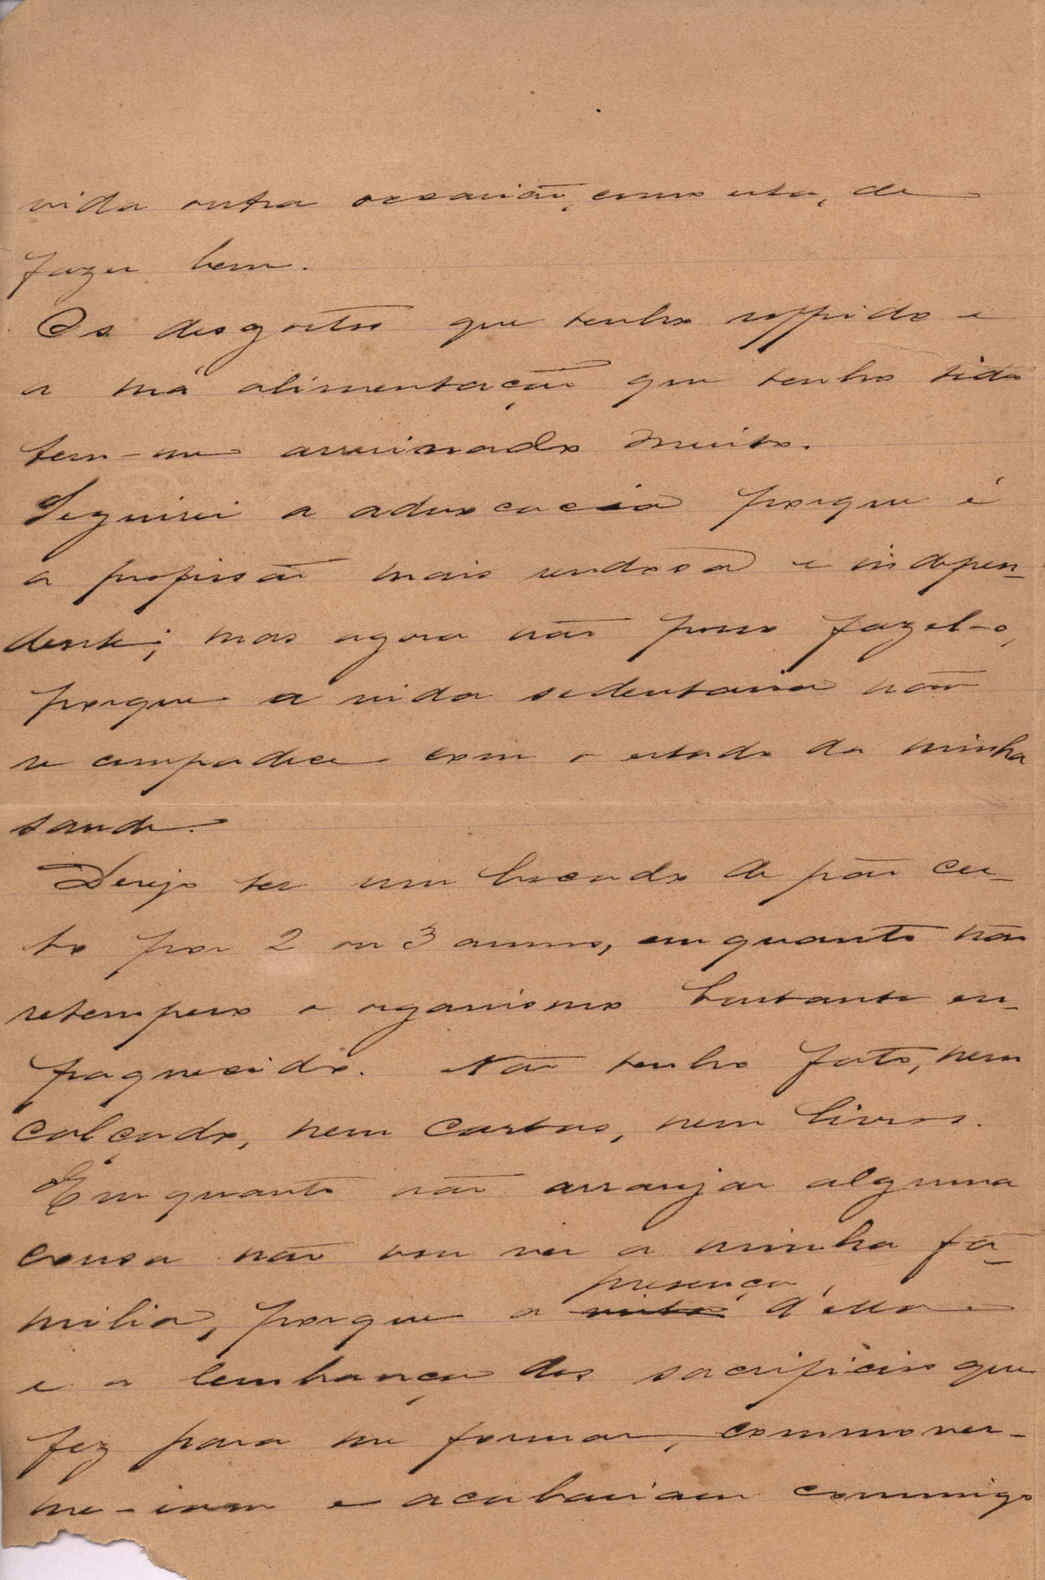 vida outra occasião, como esta, de
fazer bem.
Os desgostos que tenho soffrido e
a má alimentação que tenho tido
tem-me arruinado muito.
Seguirei a advocacia porque é
a profissão mais rendosa e indepen-
dente; mas agora não posso fazel-o,
porque a vida sedentaria não
se compadece com o estado da minha
saude.
Desejo ter um bocado de pão cer-
to por 2 ou 3 annos, emquanto não
retempero o organismo bastante en-
fraquecido. Não tenho fato, nem
calçado, nem cartas, nem livros.
Emquanto não arranjar alguma
cousa não vou ver a minha fa-
milia, porque a presença d'ella
e a lembrança dos sacrificios que
fez para me formar, commover-
me-iam e acabariam commigo